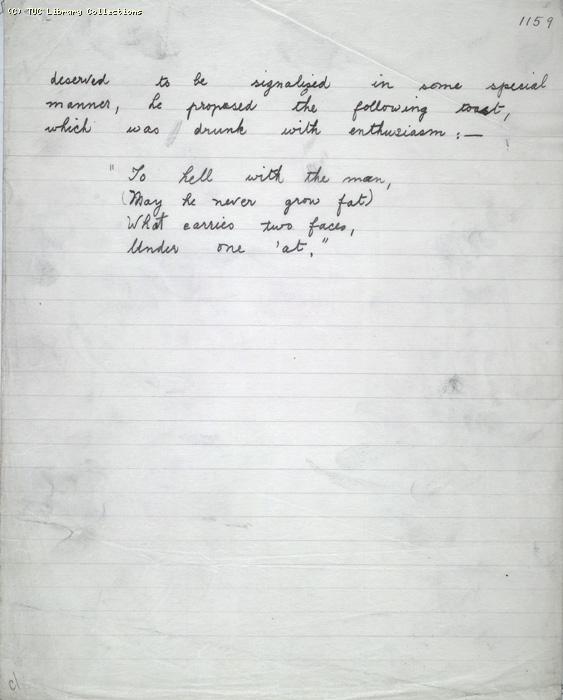 (C) TUC Library Collections
1159
deserved to be signalized in some special
manner, he proposed the following toast,
which was drunk with enthusiasm :—
"To hell with the man,
(May he never grow fat)
What carries two faces,
Under one 'at."